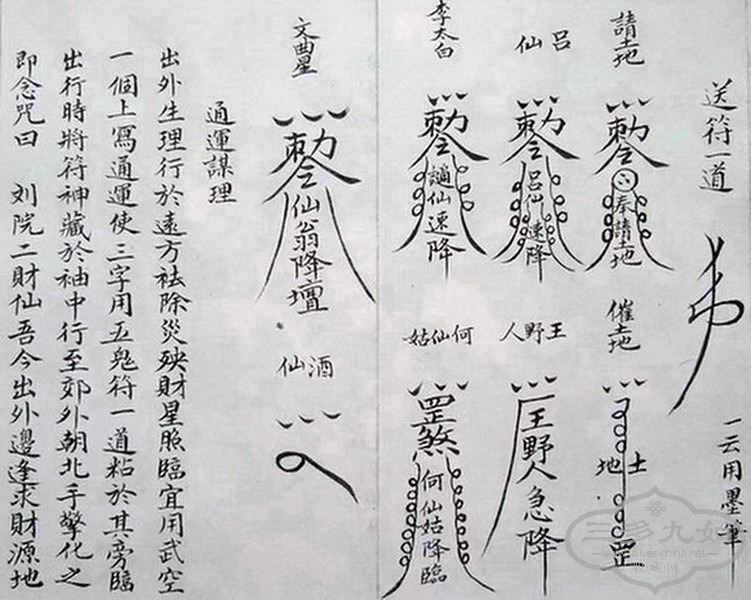 送符一道
一云用墨筆
請土地
勅令奉請土地
催土地
土地罡
呂仙
勅令呂仙速降
王野人
王野人急降
李太白
勅令謫仙速降
何仙姑
罡煞何仙姑降臨
文曲星
勅令仙翁降壇
酒仙
通運謀理
出外生理行於遠方祛除災殃財星照臨宜用武空
一個上寫通運使三字用五鬼符一道粘於其旁臨
出行時將符神藏於袖中行至郊外朝北手擎化之
即念咒曰 刘院二財仙吾今出外邊逢求財源地
三多九如
www.silver-china.net
收藏网